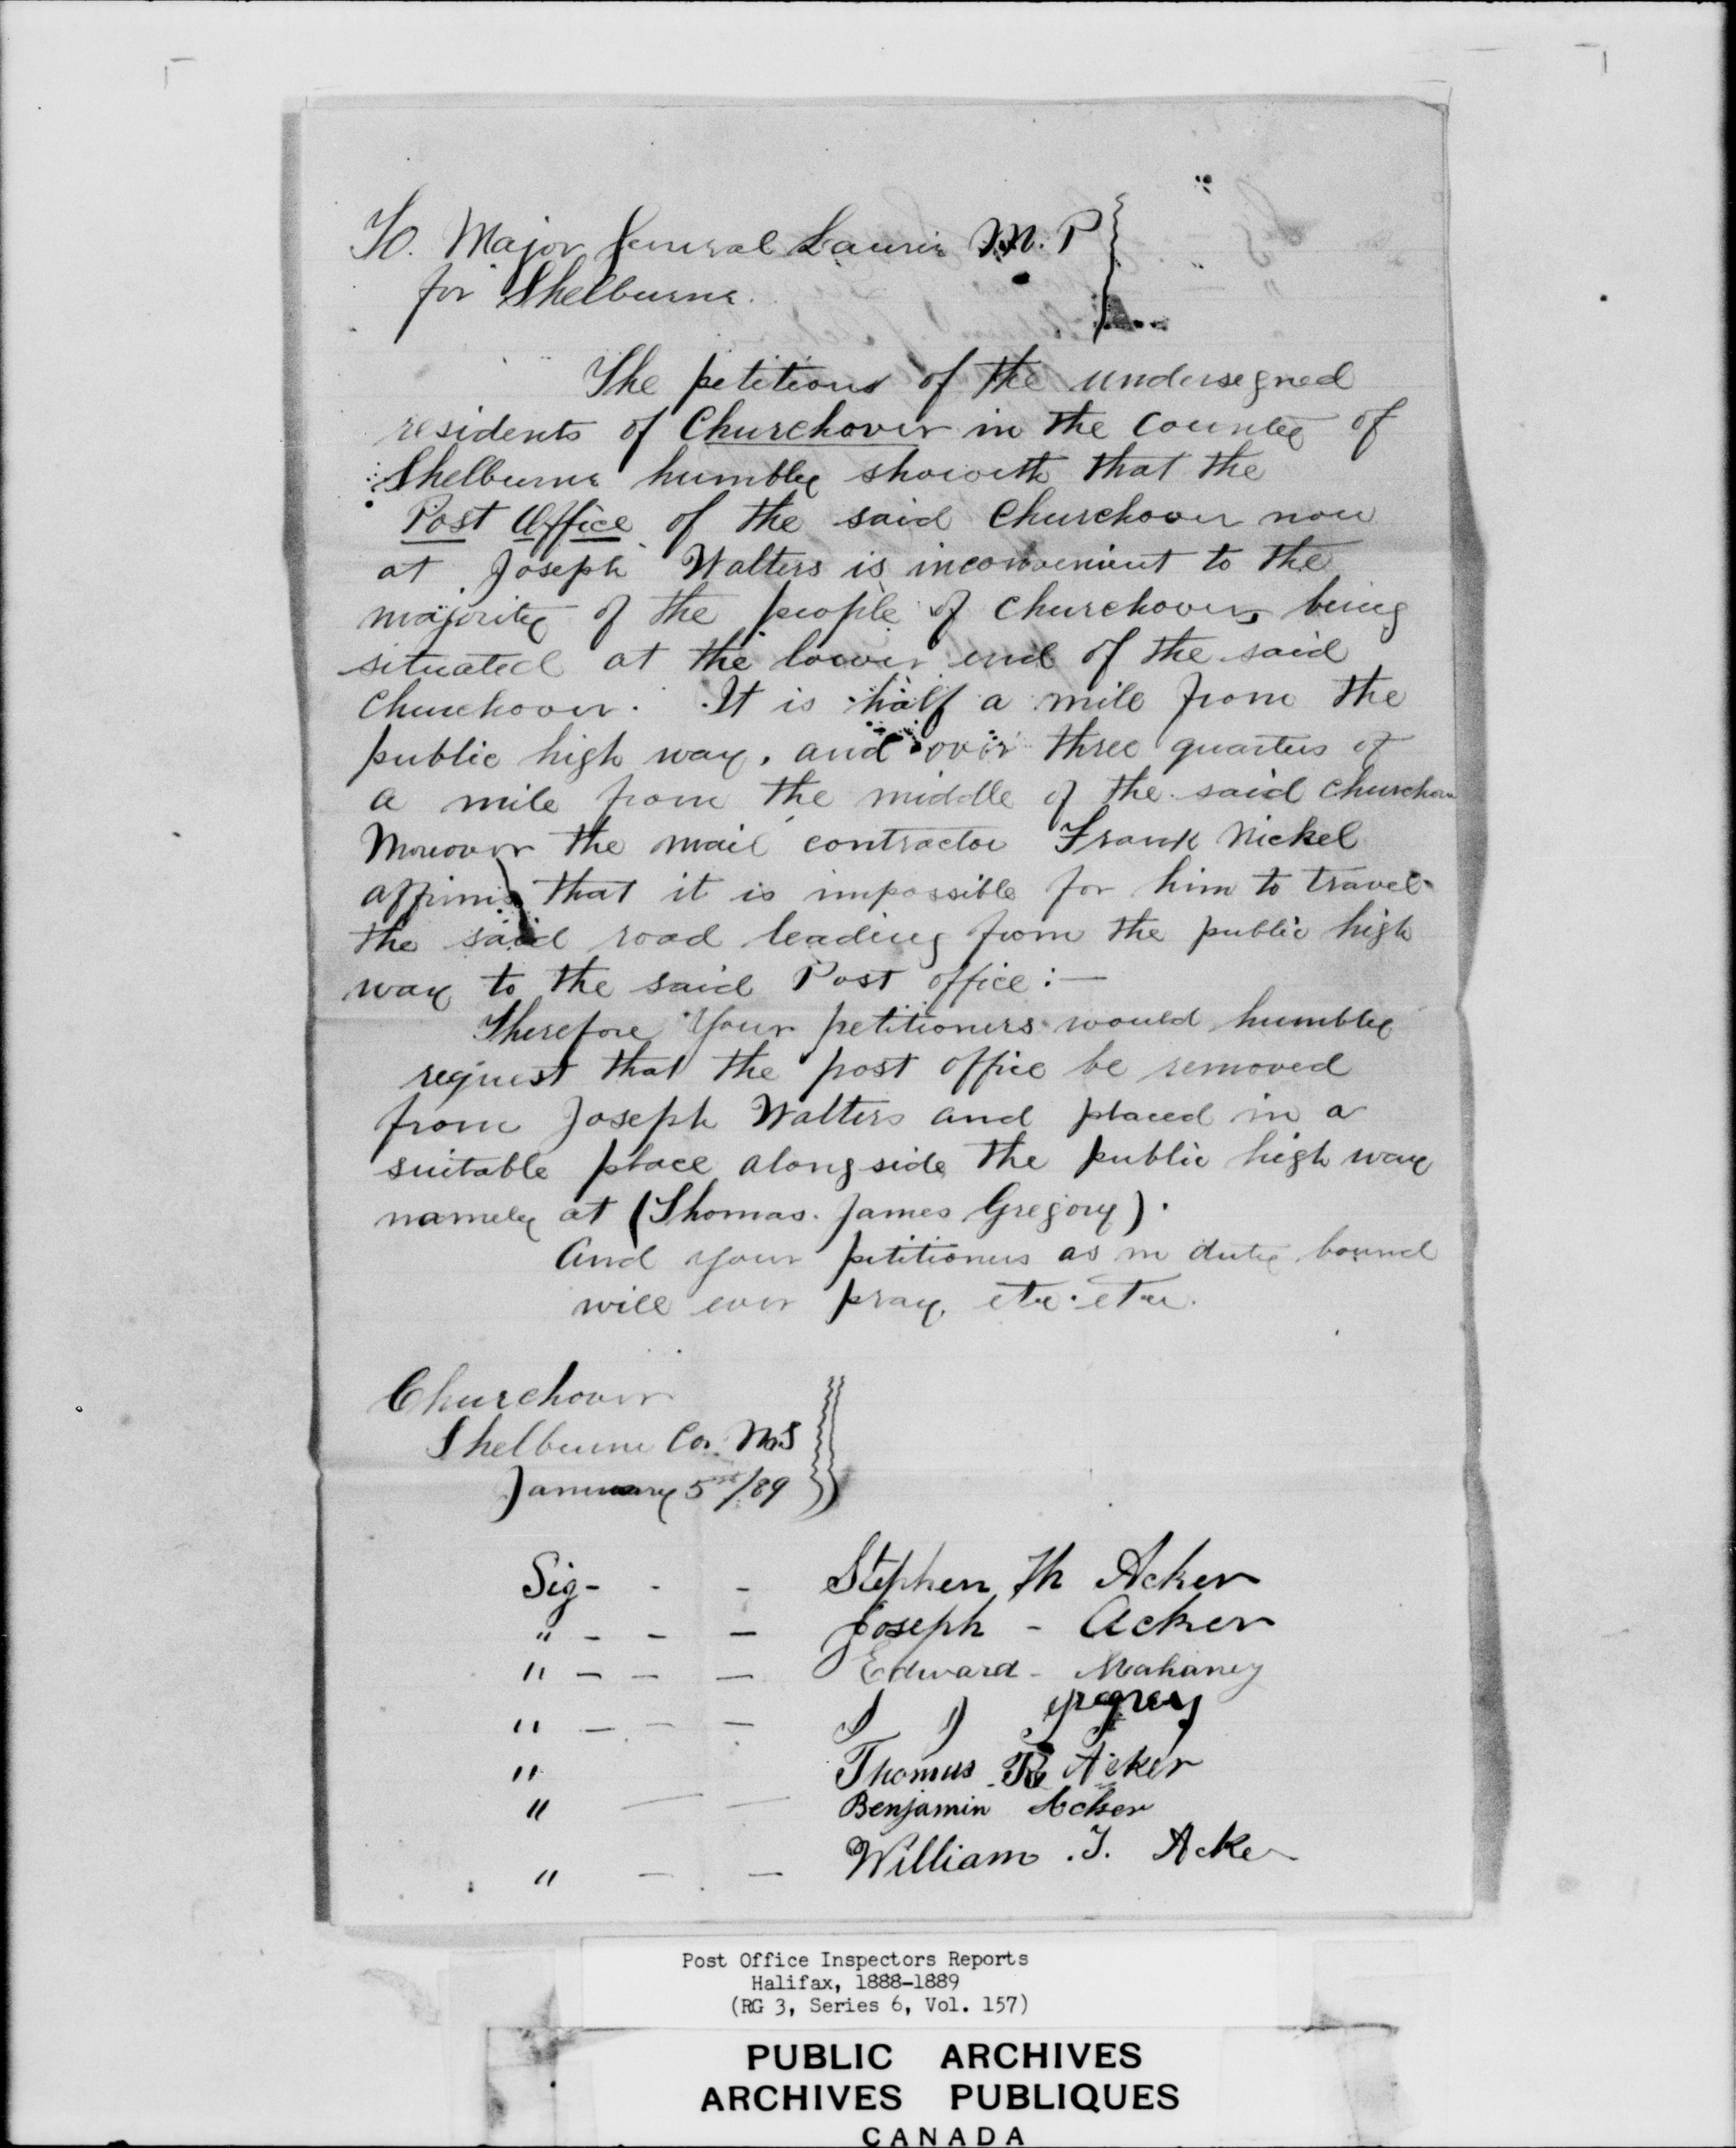 To. Major General Laurie M.P
for Shelburne.
The petitions of the undersegned
residents of Churchover in the County of
Shelburne humbly showeth that the
Post Office of the said Churchover now
at Joseph Walters is inconvenient to the
majority of the people of Churchover, being
situated at the lower end of the said
Churchover. It is half a mile from the
public high way, and over three quarters of
a mile from the middle of the said Churchover
Moreover the mail contractor Frank Nickel
affirms that it is impossible for him to travel
the said road leading from the public high
way to the said Post office :—
Therefore Your petitioners would humbly
request that the post office be removed
from Joseph Walters and placed in a
suitable place alongside the public high way
namely at (Thomas. James Gregory).
And your petitioners as in duty bound
will ever pray, etc. etc.
Churchover
Shelburne Co. N.S
January 5th/89
Sig - - - Stephen Acker
" - - - Joseph - Acker
" - - - Edward - Mahaney
" - - - J gregory
" Thomas R Acker
" — — Benjamin Acker
" — — William . T. Acker
Post Office Inspectors Reports
Halifax, 1888-1889
(RG 3, Series 6, Vol. 157)
PUBLIC ARCHIVES
ARCHIVES PUBLIQUES
CANADA